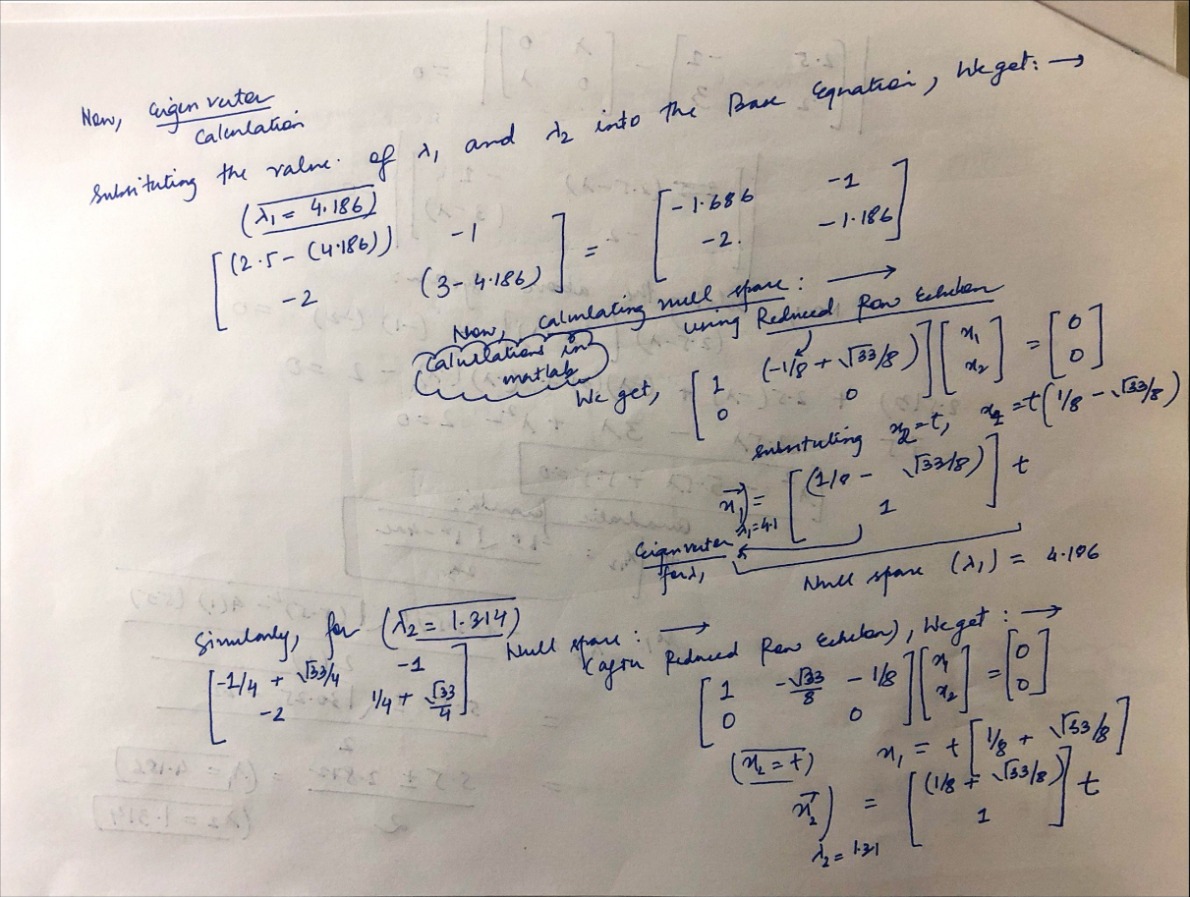 Now, Eigen vector
Calculation
Substituting the value of λ₁ and λ₂ into the Base Equation, We get: →
(λ₁ = 4.186)
[(2.5 - (4.186)) -1
-2 (3 - 4.186)] = [-1.686 -1
-2. -1.186]
Now, calculating null space: →
using Reduced Row Echelon
Calculations in
matlab
We get, [1 (-1/8 + √33/8)
0 0] [x₁
x₂] = [0
0]
substituting x₂=t, x₁=t(1/8 - √33/8)
x₁)λ₁=4.1 = [(1/8 - √33/8)
1] t
Eigen vector
for λ₁
Null space (λ₁) = 4.186
Similarly, for (λ₂ = 1.314) Null space: →
(after Reduced Row Echelon), We get: →
[-1/4 + √33/4 -1
-2 1/4 + √33/4]
[1 -√33/8 - 1/8
0 0] [x₁
x₂] = [0
0]
(x₂ = t) x₁ = t[1/8 + √33/8]
x₂)λ₂ = 1.31 = [(1/8 + √33/8)
1] t